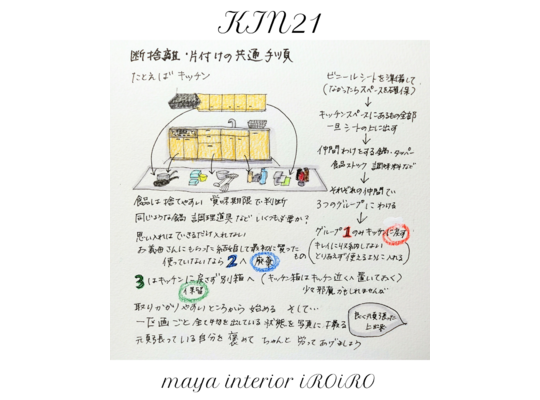 KIN21
断捨離・片付けの共通手順
たとえばキッチン
ビニールシートを準備して
(なかったらスペースを確保)
キッチンスペースにあるもの全部
一旦シートの上に出す
仲間わけをする 鍋・タッパー
食品ストック 調味料など
それぞれの仲間でい
3つのグループにわける
グループ1のみキッチンに戻す
(キレイに収納しない
とりあえず使えるように入れる)
食品は捨てやすい 賞味期限で判断
同じような鍋 調理道具など いくつも要か?
思い入れはできるだけ入れない
お義母さんにもらった 結婚して最初に買った もの
使っていないなら2へ 廃棄
3はキッチンに戻さず別箱へ (キッチン箱はキッチン近くへ置いておく)
保留
少々邪魔かもしれませんが
取りかかりやすいところから始める そして…
一区画ごと 全て中身を出している状態を写真に撮る
元気に張っている自分を褒めて ちゃんと労ってあげましょう
良く頑張った
maya interior iROiRO